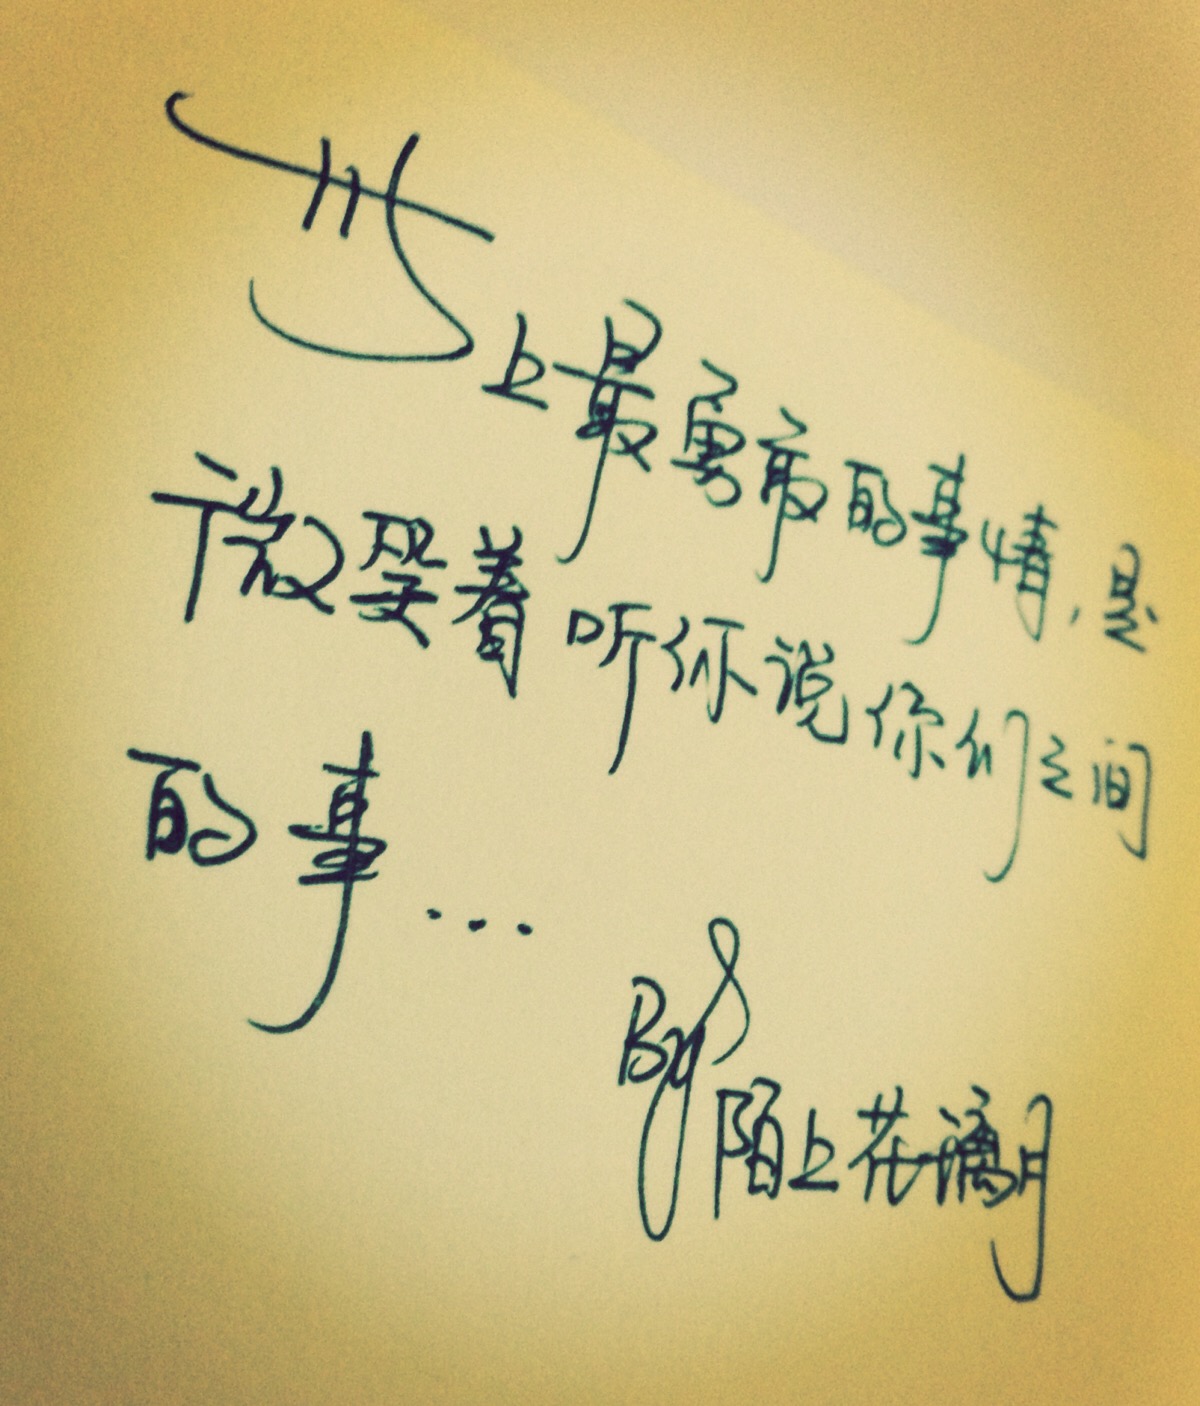 世上最勇敢的事情,是
微笑着听你说你们之间
的事...
By
陌上花漓月